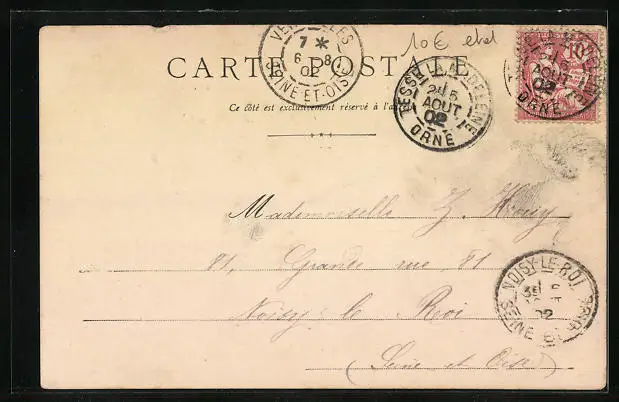 10€ etat
VERSAILLES
7 *
6 -8
02
SEINE-ET-OISE
CARTE POSTALE
Ce côté est exclusivement réservé à l'adresse
TESSÉ-LA-MADELEINE
2e/5
AOUT
02
ORNE
10
AOUT
02
ORNE
Mademoiselle Z.
81, Grande rue, 81
Noisy le Roi
(Seine et Oise)
NOISY-LE-ROI
02
SEINE ET OISE